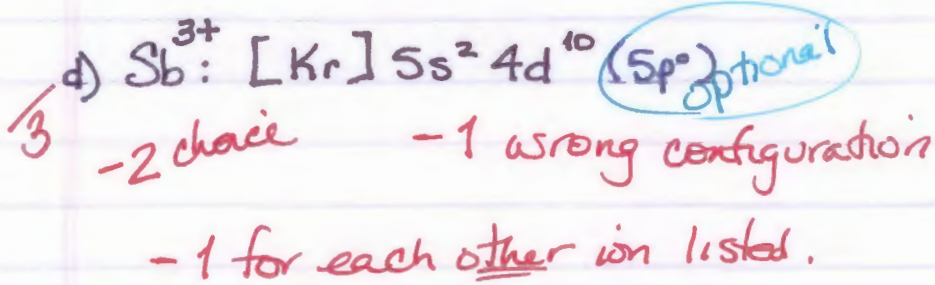 d) Sb³⁺: [Kr] 5s² 4d¹⁰ (5p°) optional
/3
-2 choice -1 wrong configuration
-1 for each other ion listed.